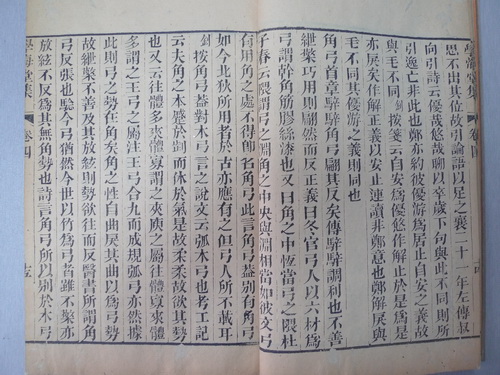 學海堂集　卷四
思不出其位故引論語以足之襄二十一年左傳叔
向引詩云優哉悠哉聊以卒歲下句與此不同則所
引逸亡非此也鄭亦約彼優游為居止自安之義故
與毛不同釗按箋云自安為優悠作解止於是為是
亦戾矣作解正義以安止連讀非鄭意也鄭解戾與
毛不同其優游之義則同也
角弓首章騂騂角弓翩其反矣傳騂騂調利也不善
紲檠巧用則翩然而反正義曰冬官弓人以六材為
弓謂幹角筋膠絲漆也又曰角之中恆當弓之隈杜
子春云隈謂弓之淵角之中央與淵相當如彼文弓
有用角之處不得即名角弓此言角弓蓋別有角弓
如今北狄所用者於古亦應有之但弓人所不載耳
釗按角弓蓋對木弓言之說文云弧木弓也考工記
云夫角之本蹙於而休於氣是故柔柔故欲其勢
也又云往體多來體寡謂之夾庾之屬往體寡來體
多謂之王弓之屬注王弓合九而成規弧弓亦然據
此則弓之勢在角矣角之性自曲戾其曲以為弓勢
故紲檠不善及其放絃則勢欲往而反醫書所謂角
弓反張也驗今弓猶然今世以竹為弓者雖不檠亦
放絃不反為其無角勢也詩言角弓所以別於木弓
學海堂集　卷四